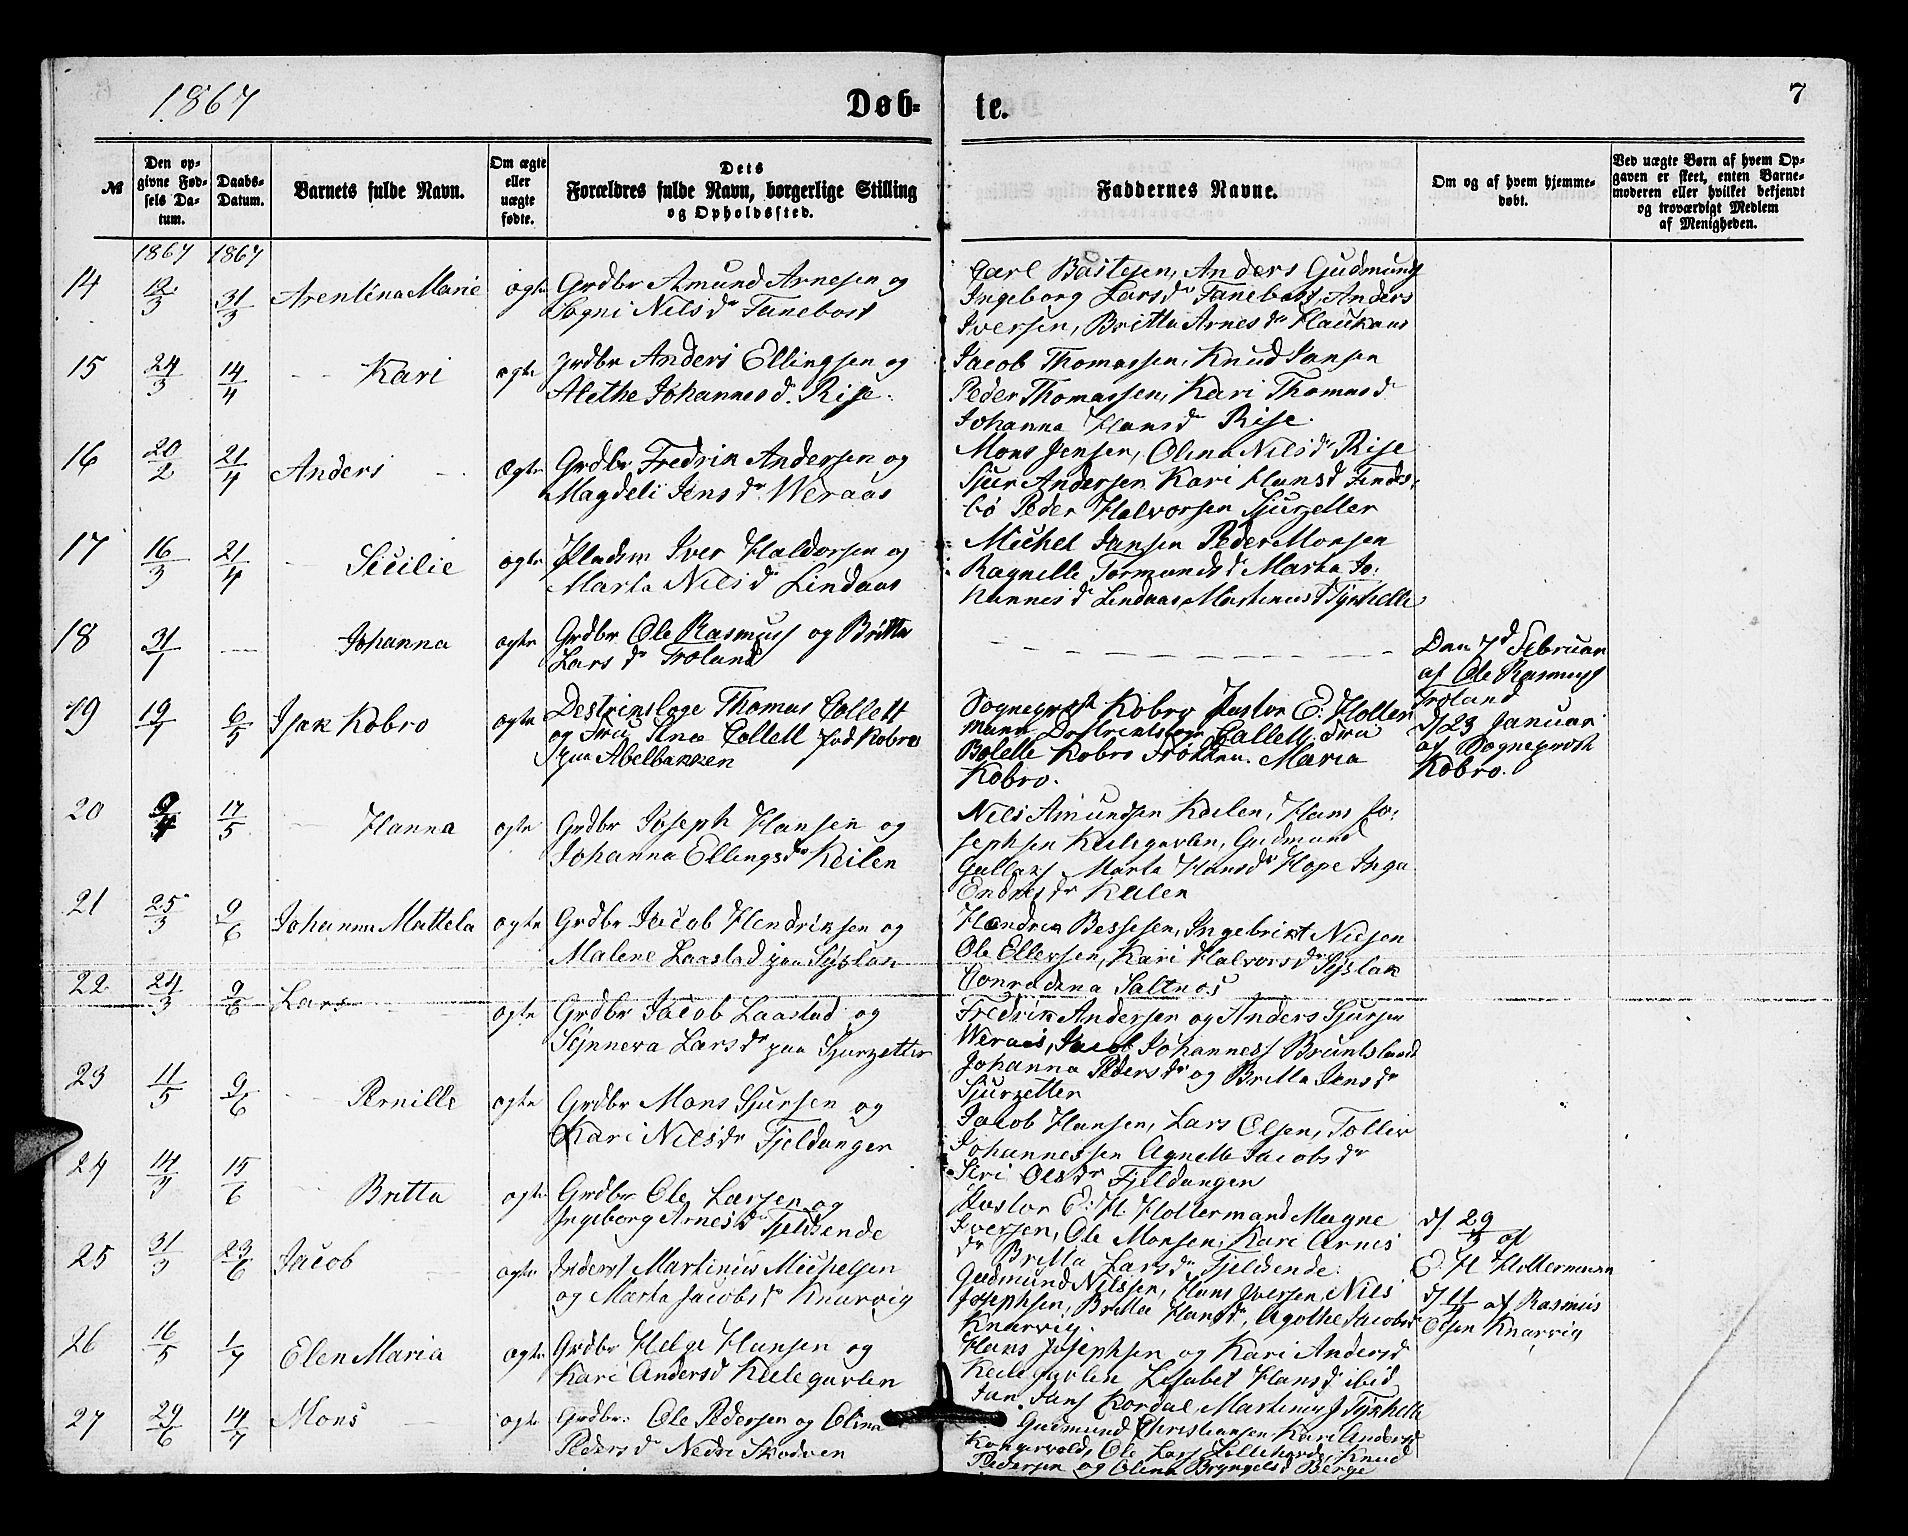 1867
Døb-
te.
7
№
Den op-
givne Fød-
sels Da-
tum.
Daabs-
Datum.
Barnets fulde Navn.
Om ægte
eller
uægte
fødte.
Dets
Forældres fulde Navn, borgerlige Stilling
og Opholdssted.
Faddernes Navne.
Om og af hvem hjemme-
døbt.
Ved uægte Børn af hvem Op-
gaven er skeet, enten Barne-
moderen eller hvilket bekjendt
og troværdigt Medlem
af Menigheden.
1867 1867
14 12/3 31/3 Arentina Marie ægte Grdbr Amund Arnesen og
Sogni Nilsdr Tanebost
Carl Bastesen, Anders Gudmunds
Ingeborg Larsdr Tanebost, Anders
Iversen, Britta Arnesdr Haukaas
15 24/3 14/4 Kari ægte Grdbr Anders Ellingsen og
Alethe Johannesd. Rise.
Jacob Thomassen, Knud Jansen
Peder Thomassen, Kari Thomasd
Johanna Hansdr Rise.
16 20/2 21/4 Anders ægte Grdbr Fredrik Andersen og
Magdeli Jensdr Weraas
Mons Jensen, Olena Nilsdr Rise
Sjur Andersen Kari Hansd Finds-
bø Peder Halvorsen Sjurzetter
17 16/3 21/4 Sicilie ægte Pladsm Iver Haldorsen og
Marta Nilsdr Lindaas
Michel Jansen Peder Monsen
Ragnelle Tormundsd Marta Jo-
hannesdr Lindaas, Martinus Tyskelle
18 31/1 Johanna ægte Grdbr Ole Rasmuss og Britta
Larsdr Troland
Den 7d Februar
af Ole Rasmuss
Troland
19 19/1 6/5 Isak Kobro ægte Destrinslæge Thomas Collett
og Fru Ina Collett fød Kobro
paa Abelbakken
Sogneprest Kobro Pastor E. Holler
mann, Destriktslæge Collett. Fru
Bolette Kobro Frøken Maria
Kobro.
d/23 Januar
af Sogneprest
Kobro.
20 17/5 Hanna ægte Grdbr Joseph Hansen og
Johanna Ellingsdr Keilen
Nils Amundsen Keilen, Hans Jo-
sephsen Keilegavlen, Gudmund
Gullaks Marta Hansdr Hope Inga
Endresdr Keilen
21 25/3 9/6 Johanna Mattela ægte Grdbr Jacob Hendriksen og
Malene Laastad paa Syslak
Hendrik Bessesen, Ingebrikt Nielsen
Ole Ellersen, Kari Halvorsdr Syslak
Conradina Saltnes
22 24/3 9/6 Lars ægte Grdbr Jacob Laastad og
Synneva Larsdr paa Sjurzetter
Fredrik Andersen og Anders Sjursen
Weraas, Jacob Johanness Bruntsland
Johanna Pedersdr og Britta Jensdr
Sjurzetter
23 11/5 9/6 Pernille ægte Grdbr Mons Sjursen og
Kari Nilsdr Fjeldanger
Jacob Hansen, Lars Olsen, Toller
Johannessen Agnetta Jacobsdr
Siri Olsdr Fjeldanger
24 14/3 15/6 Britta ægte Grdbr Ole Larsen og
Ingeborg Arnesdr Fjeldsende
Pastor E. H. Hollermand Magne
Iversen, Ole Monsen, Kari Arnes
dr Britta Larsdr Fjeldsende.
d/ 29/3 af
E. H. Hollermann
25 31/3 23/6 Jacob ægte Inderst Martinus Michelsen
og Marta Jacobsdr Knarvig
Gudmund Nilssen, Hans Iversen, Nils
Josephsen, Britta Hansdr, Agothe Jacobsd
Knarvig.
af Rasmus
Olsen Knarvig
26 16/5 1/7 Elen Maria ægte Grdbr Helge Hansen og
Kari Andersd Keilegavlen
Hans Josephsen og Kari Andersd
Keilegavlen Lisabet Hansd ibid
Jan Jans Kordal, Martinus J Tyskelle
27 29/6 14/7 Mons ægte Grdbr: Ole Pedersen og Olina
Pedersdr Nedre Skodven
Gudmund Christiansen Kari Andersd
Kongsvold, Ole Lars Lillehorde, Knud
Pedersen og Olena Bryngelsd Berge